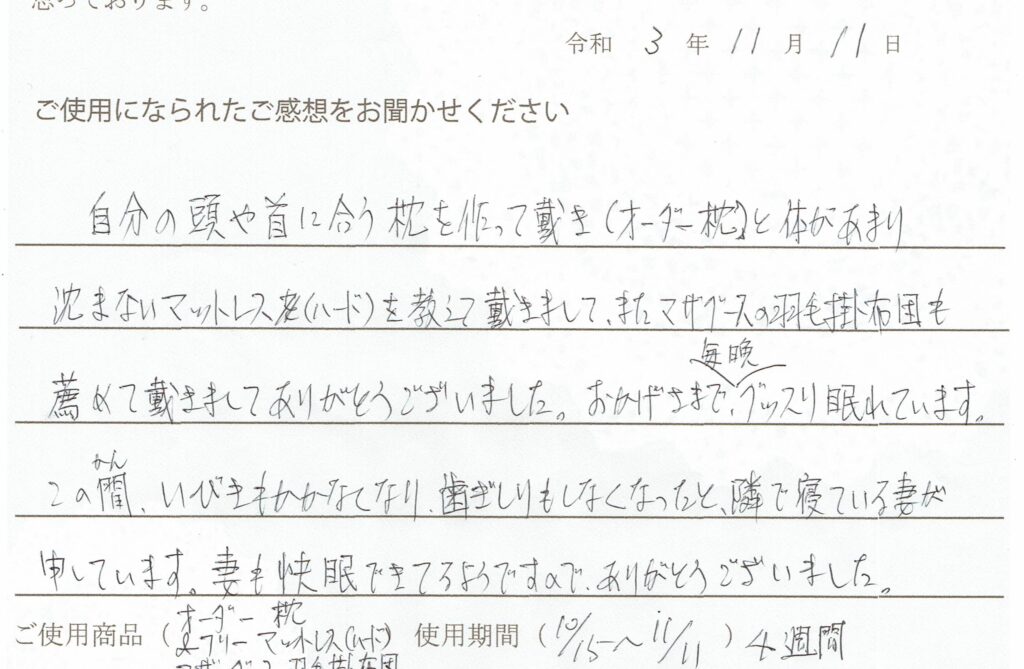 思っております。
令和 3 年 11 月 11 日
ご使用になられたご感想をお聞かせください
自分の頭や首に合う枕を作って戴き(オーダー枕)と体があまり
沈まないマットレス(ハード)を教えて戴きまして、またマザグースの羽毛掛布団も
毎晩
薦めて戴きましてありがとうございました。おかげさまで、グッスリ眠れています。
かん
この間、いびきもかかなくなり、歯ぎしりもしなくなったと、隣で寝ている妻が
申しています。妻も快眠できてるようですので、ありがとうございました。
ご使用商品(オーダー枕
フリーマットレス(ハード) 使用期間(10/15〜11/11)4週間
マザグース羽毛掛布団